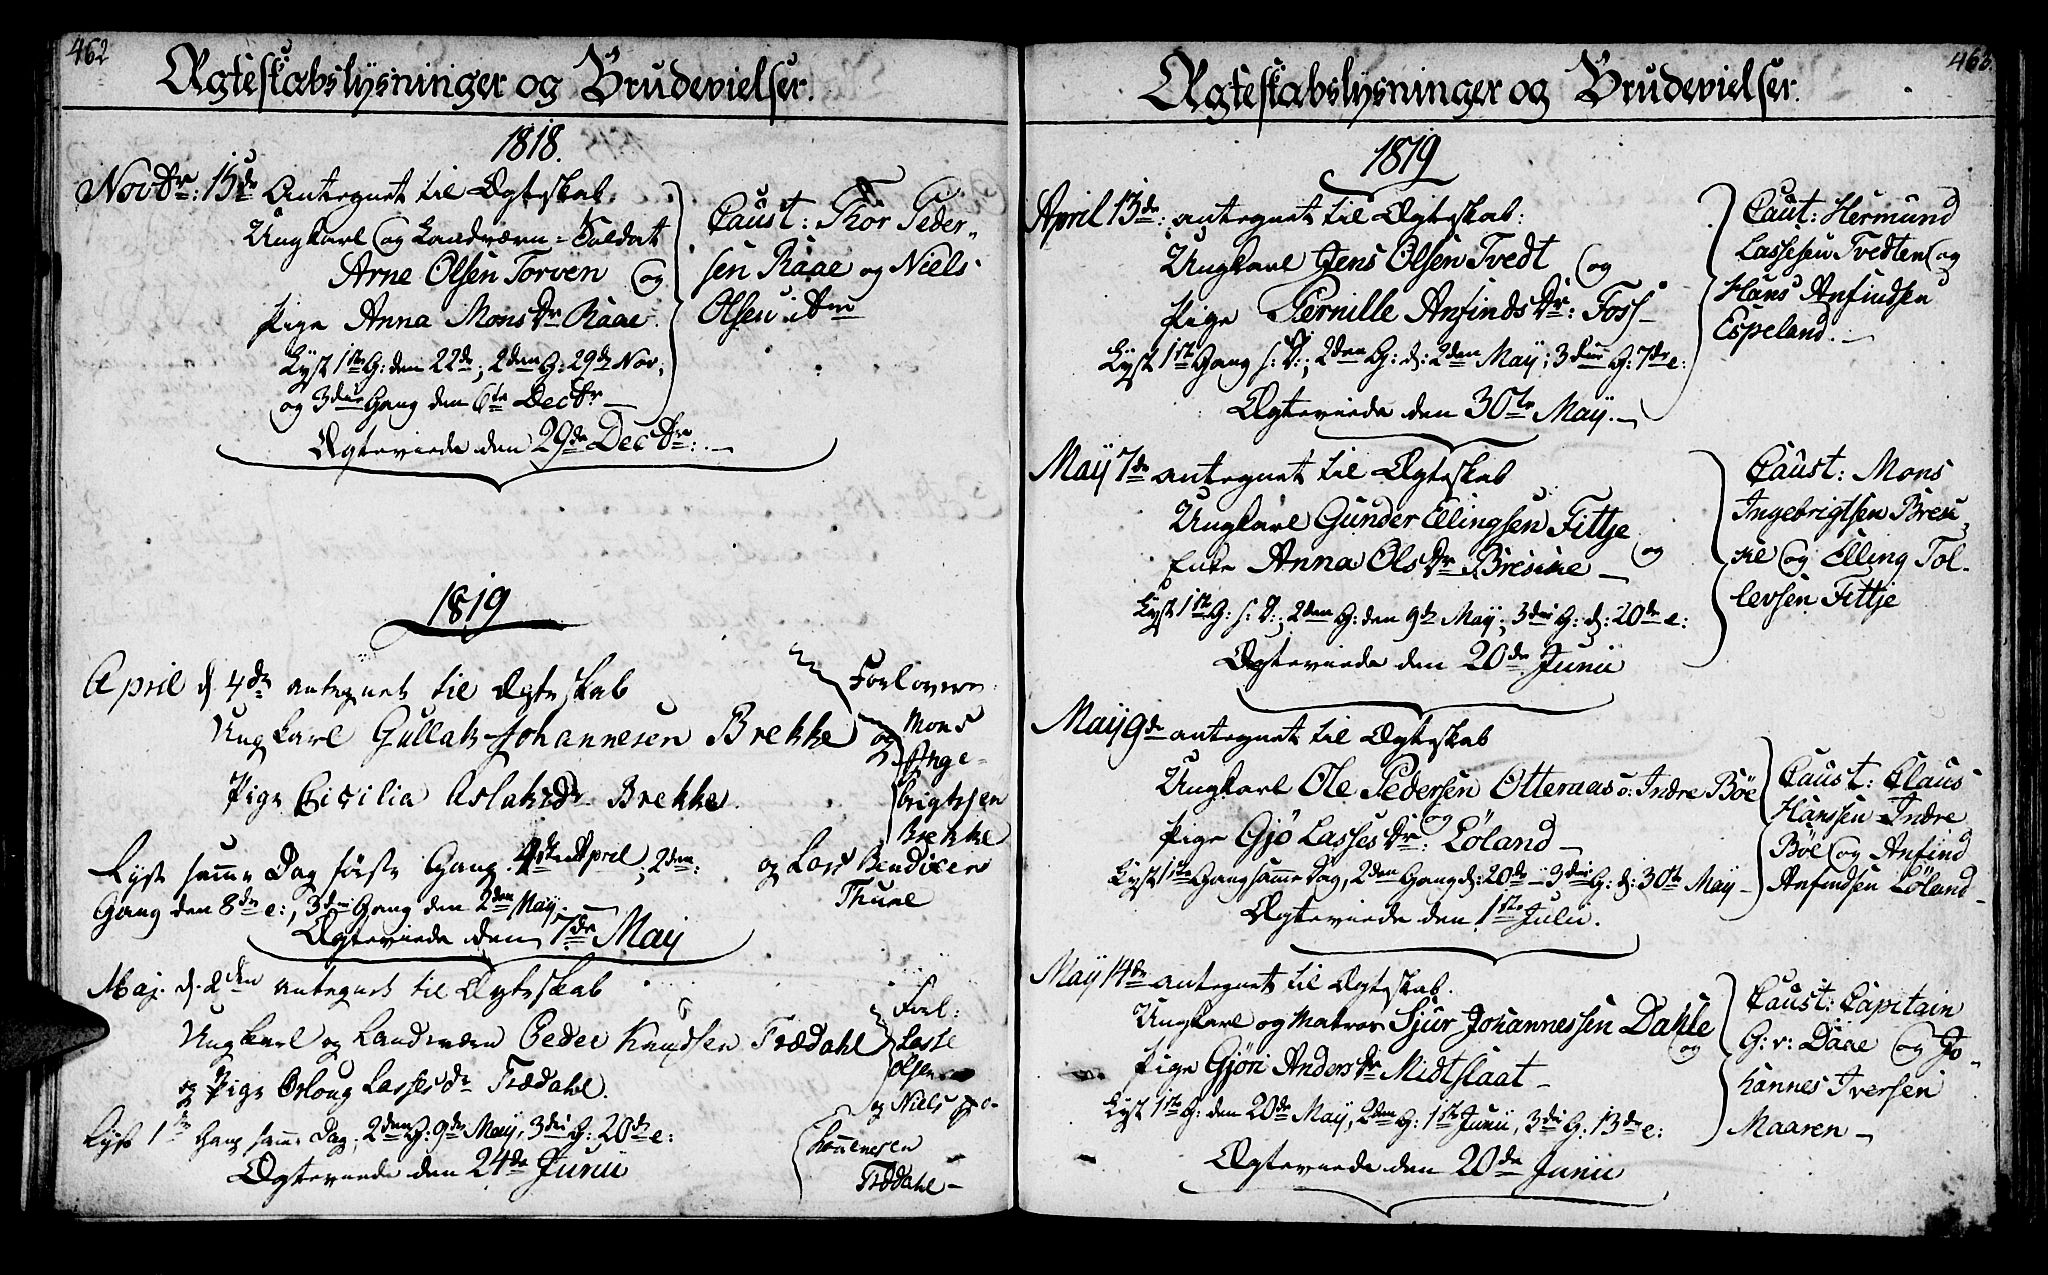 462
Ægteskabslysninger og Brudevielser.
1818.
Novbr: 15de Antegnet til Ægteskab.
Ungkarl og Landværn-Soldat
Arne Olsen Torven og
Pige Anna Monsdr Raae.
Lyst 1ste G: den 22de; 2den G: 29de Nov;
og 3die Gang den 6te Decbr —
Ægteviede den 29de Decbr: —
Caust: Thor Peder-
sen Raae og Niels
Olsen ibm
1819
April d 4de antegnet til Ægteskab
Ungkarl Gullak Johannesen Brekke og
Pige Cicilia Aslaksdr Brekke.
Lyst samme Dag første Gang. 4de April; 2den:
Gang den 8de e:, 3die Gang den 2den May; —
Ægteviede den 7de May
Forlovere.
Mons
Inge-
brigtssen
Brekke
og Lars Bendixen
Thune
Maj. d. 2den antegnet til Ægteskab
Ungkarl og Landværn Peder Knudsen Trædahl
og Pige Osloug Lassesdr Trædahl.
Lyst 1ste Gang samme Dag; 2den G: 9de May, 3die G: 20de e:
Ægteviede den 24de Junii
Forl:
Lasse
Olsen
og Niels Jo-
hannesen
Trædahl —
463.
Ægteskabslysninger og Brudevielser.
1819
April 13de: antegnet til Ægteskab:
Ungkarl Jens Olsen Tvedt og
Pige Pernille Anfindsdr: Foss —
Lyst 1ste Gang s: D:; 2den G: d: 2den May; 3die G: 7de e:
Ægteviede den 30te May. —
Caut: Hermund
Lassesen Tvedten og
Hans Anfindsen
Espeland. —
May 7de antegnet til Ægteskab
Ungkarl Gunder Ellingsen Fittje og
Enke Anna Olsdr Bresine —
Lyst 1ste G: s: D:; 2den G: den 9de May; 3die G: d: 20de e:
Ægteviede den 20de Junii
Caust: Mons
Ingebrigtsen Bresi-
ne og Elling Tol-
levsen Fittje
May 9de antegnet til Ægteskab
Ungkarl Ole Pedersen Otteraas o: Indre Böe
og
Pige Gjö Lassesdr: Löland —
Lyst 1ste Gang samme Dag, 2den Gang d: 20de — 3die G: d: 30te May —
Ægteviede den 1ste Julii.
Caust: Claus
Hanssen Indre
Böe og Anfind
Anfindsen Löland —
May 14de antegnet til Ægteskab.
Ungkarl og Matros Sjur Johannessen Dahle og
Pige Gjöri Andersdr Midtslaat —
Lyst 1ste G: den 20de May, 2den G: 1ste Junii, 3die G: 13de e:
Ægteviede den 20de Junii
Caust: Capitain
G: v: Daae og Jo-
hannes Iversen
Maaren —